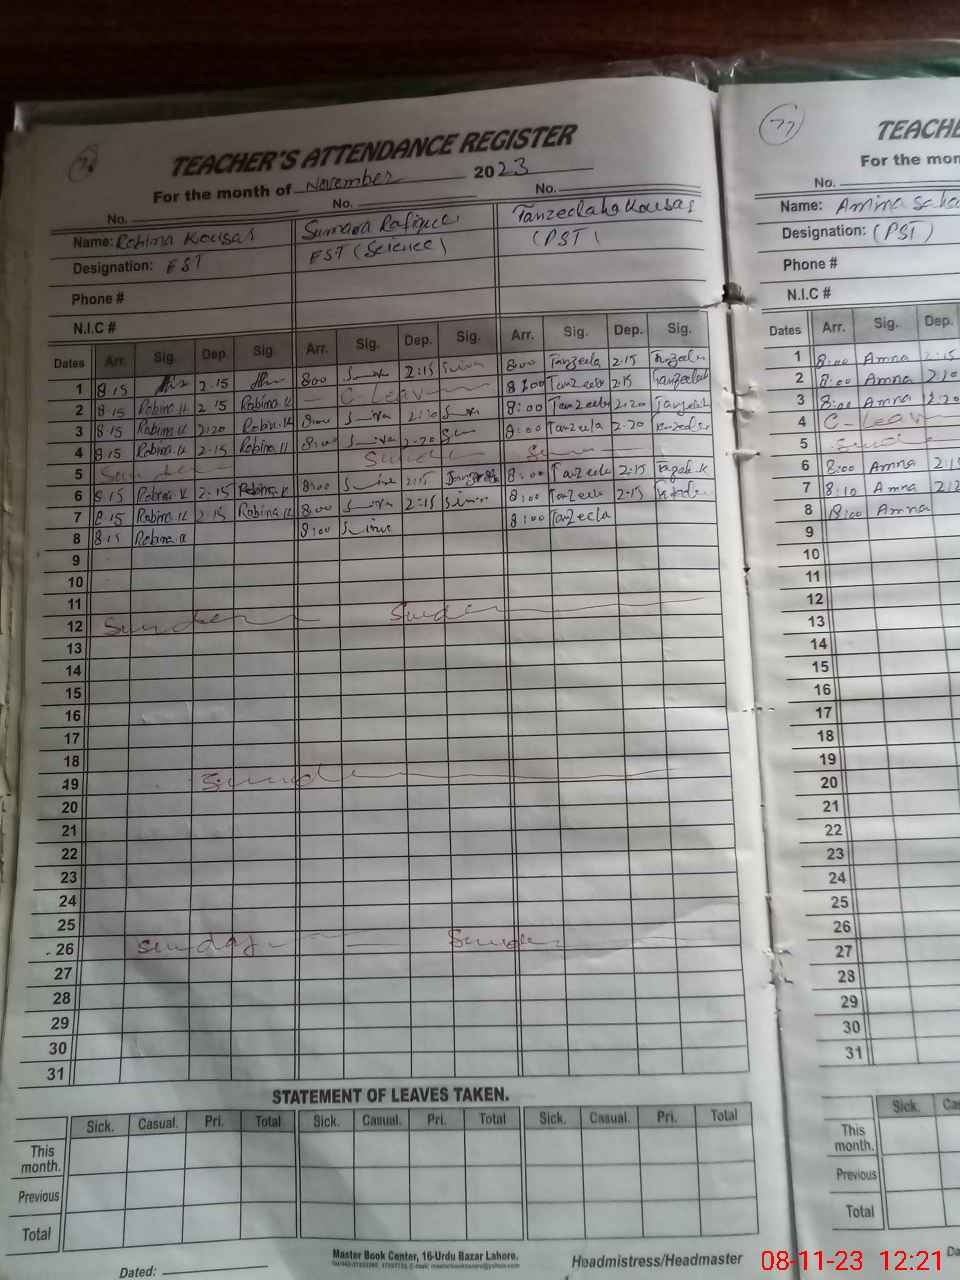 76
TEACHER'S ATTENDANCE REGISTER
For the month of November 2023
No. No. No.
Name: Robina Kousar Sumara Rafique Tanzeelaha Kousar
Designation: EST EST (Science) (PST)
Phone #
N.I.C #
Dates Arr. Sig. Dep. Sig. Arr. Sig. Dep. Sig. Arr. Sig. Dep. Sig.
1 8.15 2.15 8:00 2:15 8:00 Tanzeela 2:15
2 8.15 Robina.K 2.15 Robina.K C. Leave 8:00 Tanzeela 2:15 Tanzeela
3 8.15 Robina.K 2:20 Robina.K 8:00 2:20 8:00 Tanzeela 2:20 Tanzeela
4 8.15 Robina.K 2.15 Robina.K 8:00 2:20 8:00 Tanzeela 2:20
5 Sunday Sunday
6 8.15 Robina.K 2:15 Robina.K 8:00 2:15 8:00 Tanzeela 2:15
7 8.15 Robina.K 2:15 Robina.K 8:00 2:15 8:00 Tanzeela 2:15
8 8.15 Robina.K 8:00 8:00 Tanzeela
9
10
11
12 Sunday Sunday
13
14
15
16
17
18
19 Sunday
20
21
22
23
24
25
26 Sunday Sunday
27
28
29
30
31
STATEMENT OF LEAVES TAKEN.
Sick. Casual. Pri. Total Sick. Casual. Pri. Total Sick. Casual. Pri. Total
This month.
Previous
Total
Dated:
Master Book Center, 16-Urdu Bazar Lahore.
Headmistress/Headmaster
77
TEACHE
For the mon
No.
Name: Amina
Designation: (PST)
Phone #
N.I.C #
Dates Arr. Sig. Dep.
1 8:00 Amna 2:15
2 8:00 Amna 2:20
3 8:00 Amna 2:20
4 C- Leav
5 Sunde
6 8:00 Amna 2:15
7 8:10 Amna 2:2
8 8:00 Amna
9
10
11
12
13
14
15
16
17
18
19
20
21
22
23
24
25
26
27
28
29
30
31
Sick. Ca
This month.
Previous
Total
Da
08-11-23 12:21